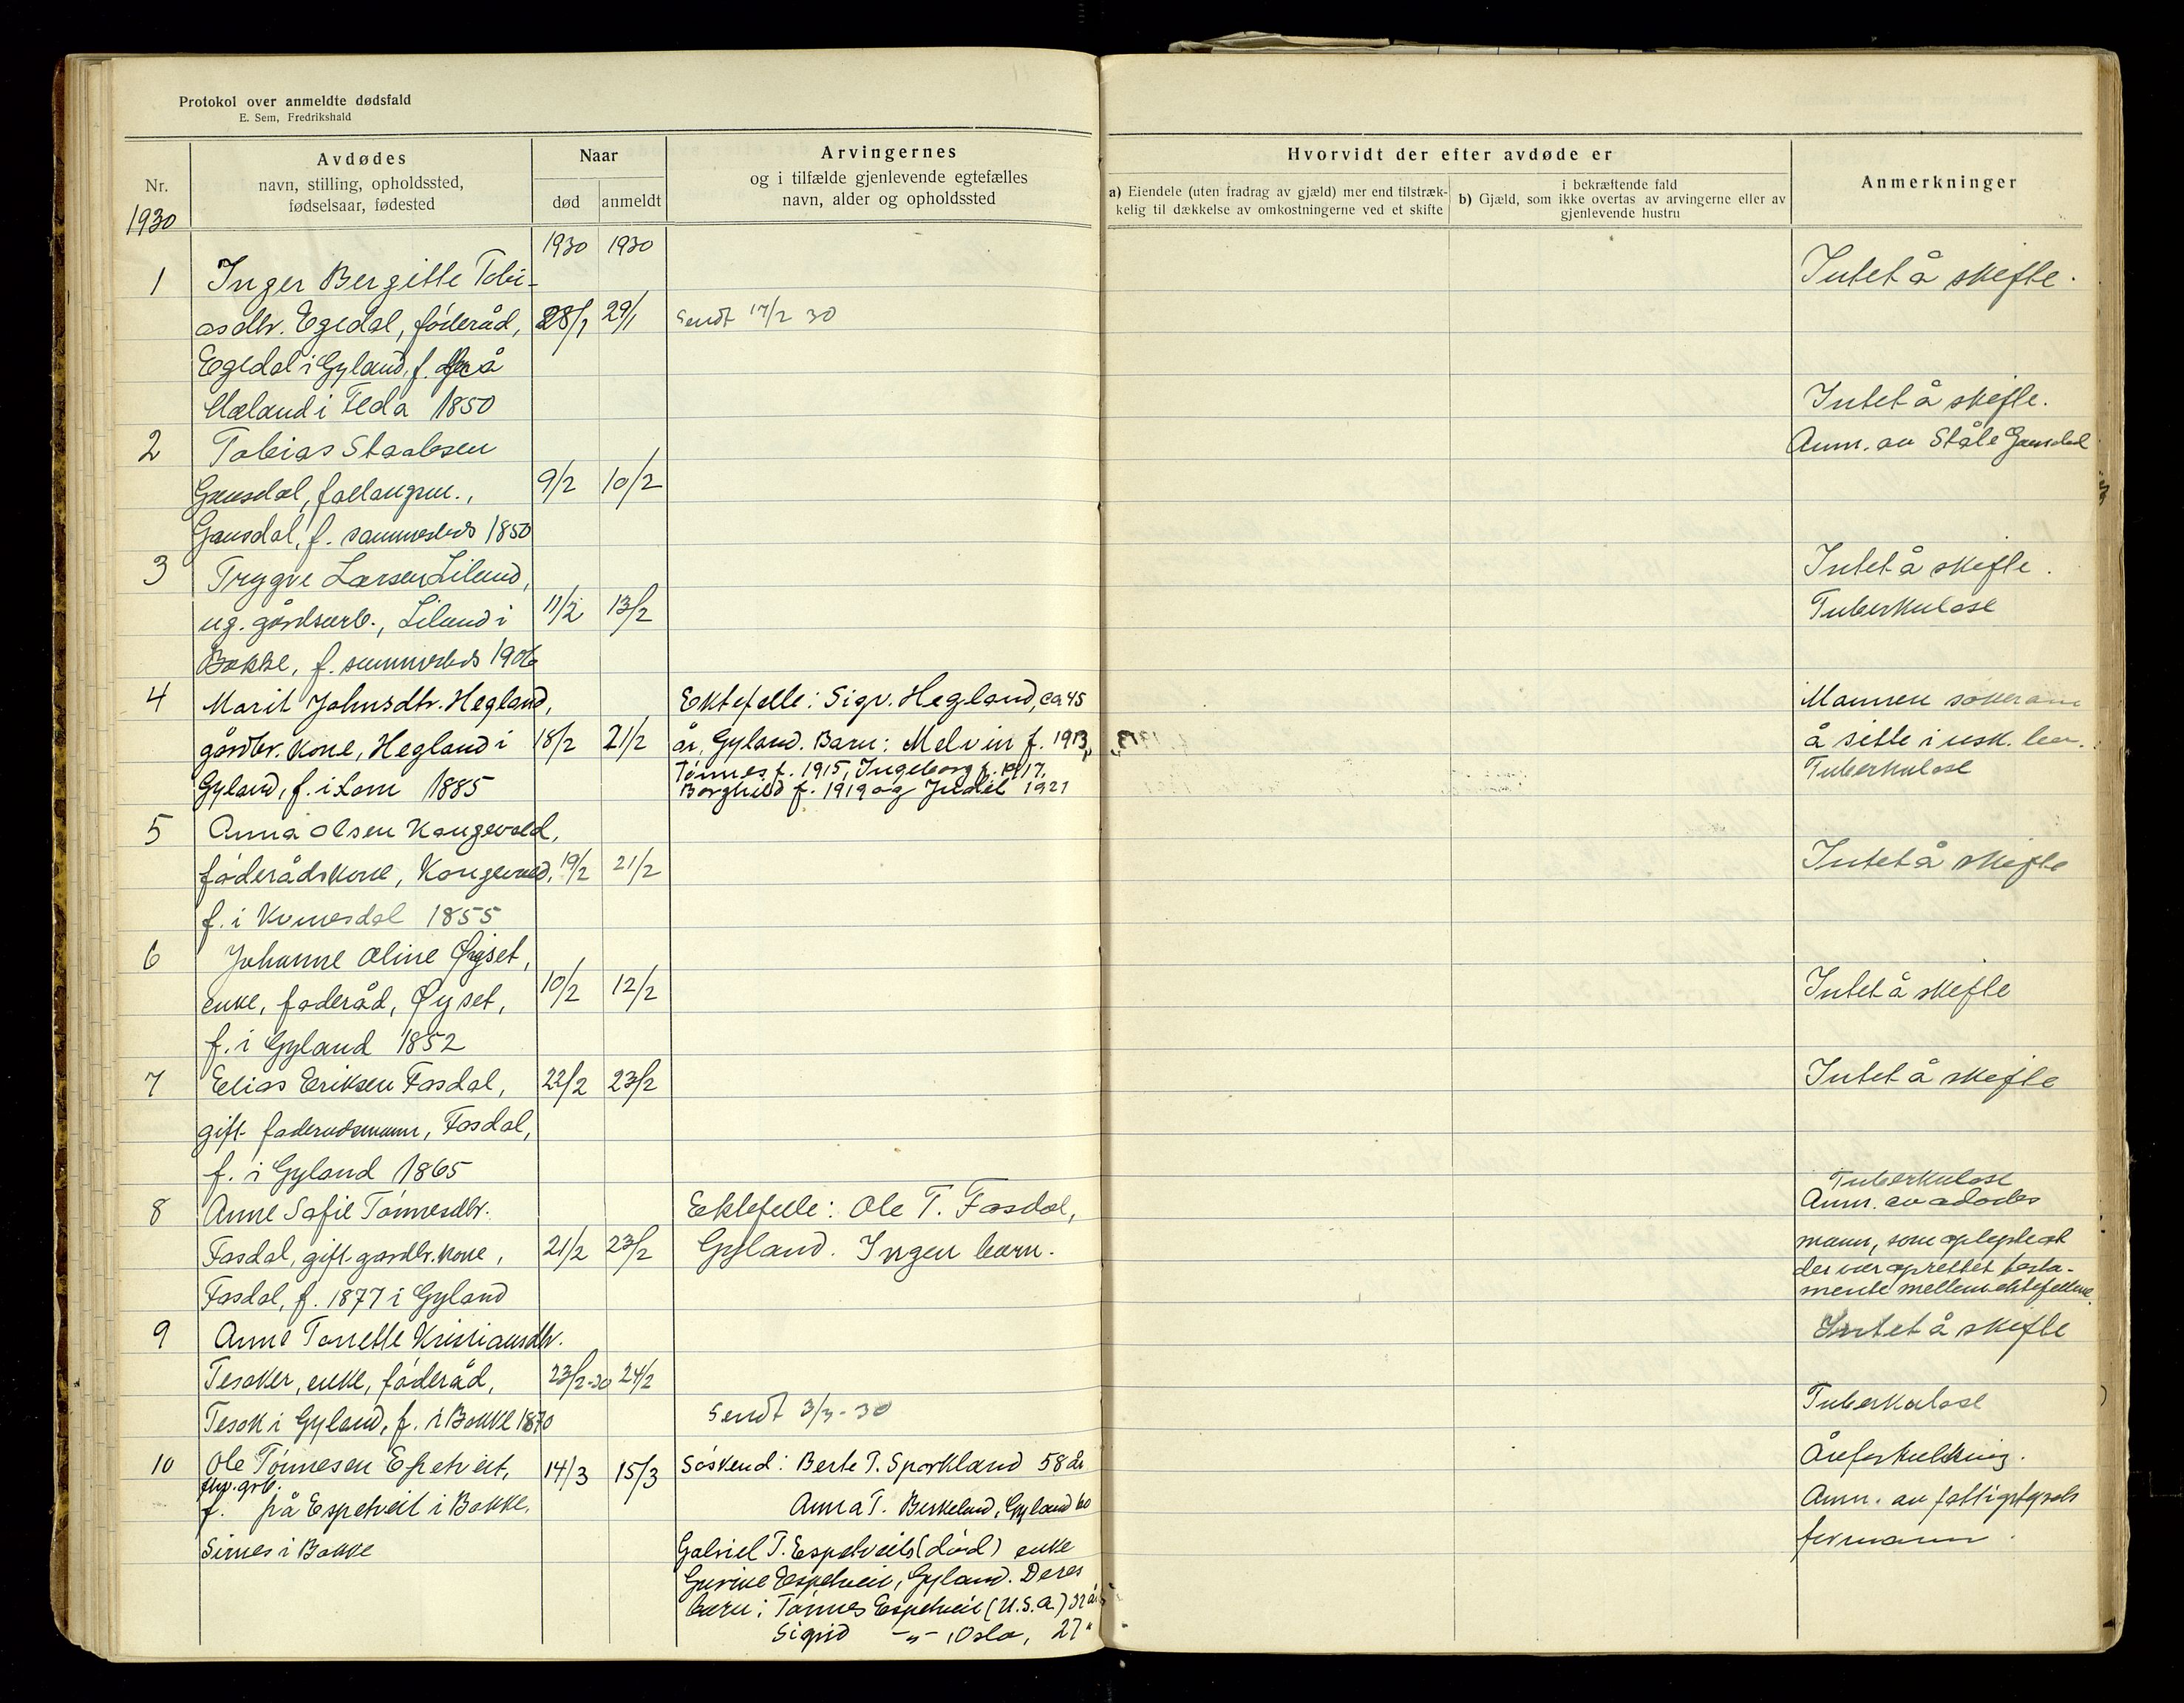 Protokol over anmeldte dødsfald
E. Sem, Fredrikshald
Nr.
1930
Avdødes
navn, stilling, opholdssted,
fødselsaar, fødested
Naar
død
anmeldt
Arvingernes
og i tilfælde gjenlevende egtefælles
navn, alder og opholdssted
Hvorvidt der efter avdøde er
a) Eiendele (uten fradrag av gjæld) mer end tilstræk-
kelig til dækkelse av omkostningerne ved et skifte
i bekræftende fald
b) Gjæld, som ikke overtas av arvingerne eller av
gjenlevende hustru
Anmerkninger
1930 1930
1 Inger Bergitte Tobi- Intet å skifte.
asdtr. Egedal, føderåd, 28/1 29/1 Sendt 17/2 30
Egedal i Gyland, f. på
Mæland i Feda 1850 Intet å skifte.
2 Tobias Staalesen Anm. av Ståle Gausdal
Gausdal, 9/2 10/2
Gausdal, f. sammesteds 1850
3 Trygve Larsen Liland, Intet å skifte.
ug. gårdsarb., Liland i 11/2 13/2 Tuberkulose
Bakke, f. sammesteds 1906
4 Marit Johnsdtr. Hegland, Ektefelle: Sigv. Hegland, ca 45 Mannen søker om
gårdbr. kone, Hegland i 18/2 21/2 år, Gyland. Barn: Melvin f. 1913, å sitte i usk. bo.
Tønnes f. 1915, Ingeborg f. 1917, Tuberkulose
Gyland, f. i Lom 1885 Borghild f. 1919 og 1921
5 Anna Olsen Kongevold,
føderådskone, Kongevold, 19/2 21/2 Intet å skifte
f. i Kvinesdal 1855
6 Johanne Oline Øyset,
enke, føderåd, Øyset, 10/2 12/2 Intet å skifte
f. i Gyland 1852
7 Elias Eriksen Fosdal, 22/2 23/2 Intet å skifte
gift føderådsmann, Fosdal,
f. i Gyland 1865
Tuberkulose
8 Anne Sofie Tønnesdtr. Ektefelle: Ole T. Fosdal, Anm. av avdødes
Fosdal, gift gårdbr. kone, 21/2 23/2 Gyland. Ingen barn. mann, som oplyste at
der var oprettet testa-
Fosdal, f. 1877 i Gyland mente mellem ektefellene.
9 Anne Tonette Kristiansdtr. Intet å skifte
Tesaker, enke, føderåd, 23/2-30 24/2
Tesak i Gyland, f. i Bakke 1870 Sendt 3/3-30 Tuberkulose
10 Ole Tønnesen Espetveit, 14/3 15/3 Søskend: Berte T. Sporkland 58 år Åreforkalkning.
f. på Espetveit i Bakke. Anna T. Birkeland, Gyland 60 Anm. av fattigstyrets
Sirnes i Bakke Gabriel T. Espetveits (død) enke formann.
Gurine Espetveit, Gyland. Deres
barn: Tønnes Espetveit (U.S.A.) 32 år
Sigrid -"- , Oslo, 27 "